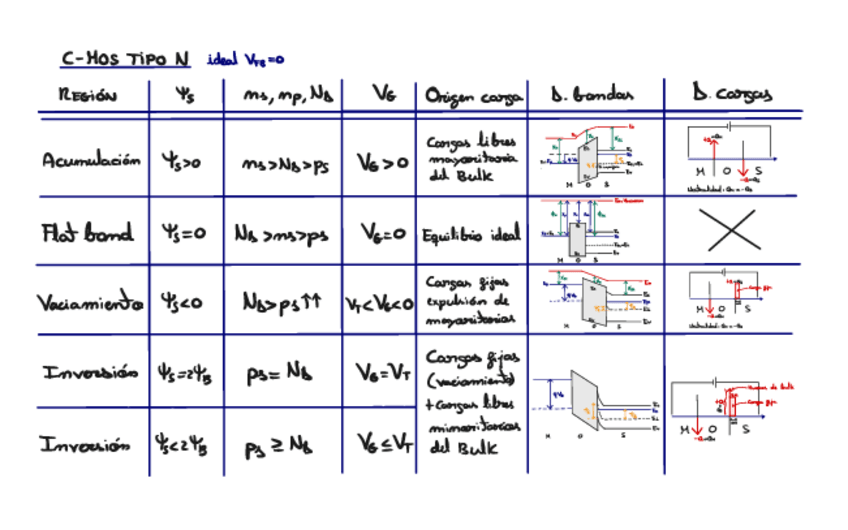 C-MOS TIPO N ideal V_FB=0
REGIÓN ψs ns, np, N_D V_G Origen carga D. bandas D. cargas
Acumulación ψs>0 ns>N_D>ps V_G>0 Cargas libres
mayoritaria
del Bulk
M O S
M O S
Flat band ψs=0 N_D>ns>ps V_G=0 Equilibrio ideal
M O S
Vaciamiento ψs<0 N_D>ps↑↑ V_T<V_G<0 Cargas fijas
expulsión de
mayoritarios
M O S
M O S
Inversión ψs=2ψ_B ps=N_D V_G=V_T Cargas fijas
(vaciamiento)
+Cargas libres
minoritarias
del Bulk
Inversión ψs<2ψ_B ps≥N_D V_G≤V_T
M O S
M O S